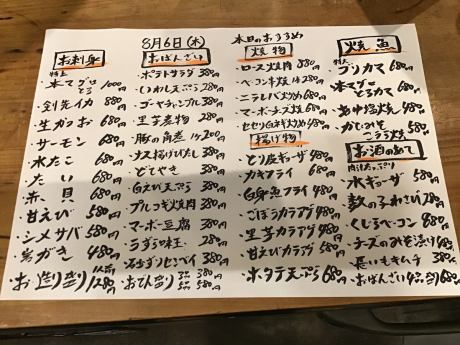 8月6日(木)
本日のおすすめ
お刺身
特上
本マグロとろ 1000円
剣先イカ 880円
生がつお 680円
サーモン 680円
水たこ 680円
たい 680円
赤貝 680円
甘えび 580円
シメサバ 580円
岩がき 480円
お造り盛り 1人前 1280円
おばんざい
ポテトサラダ 380円
いわし天ぷら 280円
ゴーヤチャンプル 380円
里芋煮物 280円
豚の角煮 1ケ 200円
ナス揚げびたし 380円
どてやき 380円
白えび天ぷら 380円
プルコギ炒肉 380円
マーボー豆腐 380円
うずら串玉 280円
380円
おでん盛り 380円 580円
焼物
ロース焼肉 380円
ベーコン串焼 1本 280円
ニラレバ炒め 680円
マーボーチーズ焼 680円
セセリ白ネギ炒め 480円
揚げ物
とり皮ギョーザ 480円
カキフライ 680円
白身魚フライ 480円
ごぼうカラアゲ 480円
里芋カラアゲ 480円
甘えびカラアゲ 480円
ホタテ天ぷら 680円
焼魚
特大
ブリカマ 680円
本マグロとろカマ 680円
あゆ塩焼 580円
お酒のあて
肉汁たっぷり
水ギョーザ 580円
数の子わさび 380円
くじらベーコン 480円
チーズのみそ漬け 480円
長いもキムチ 380円
おばんざい4品盛り 680円